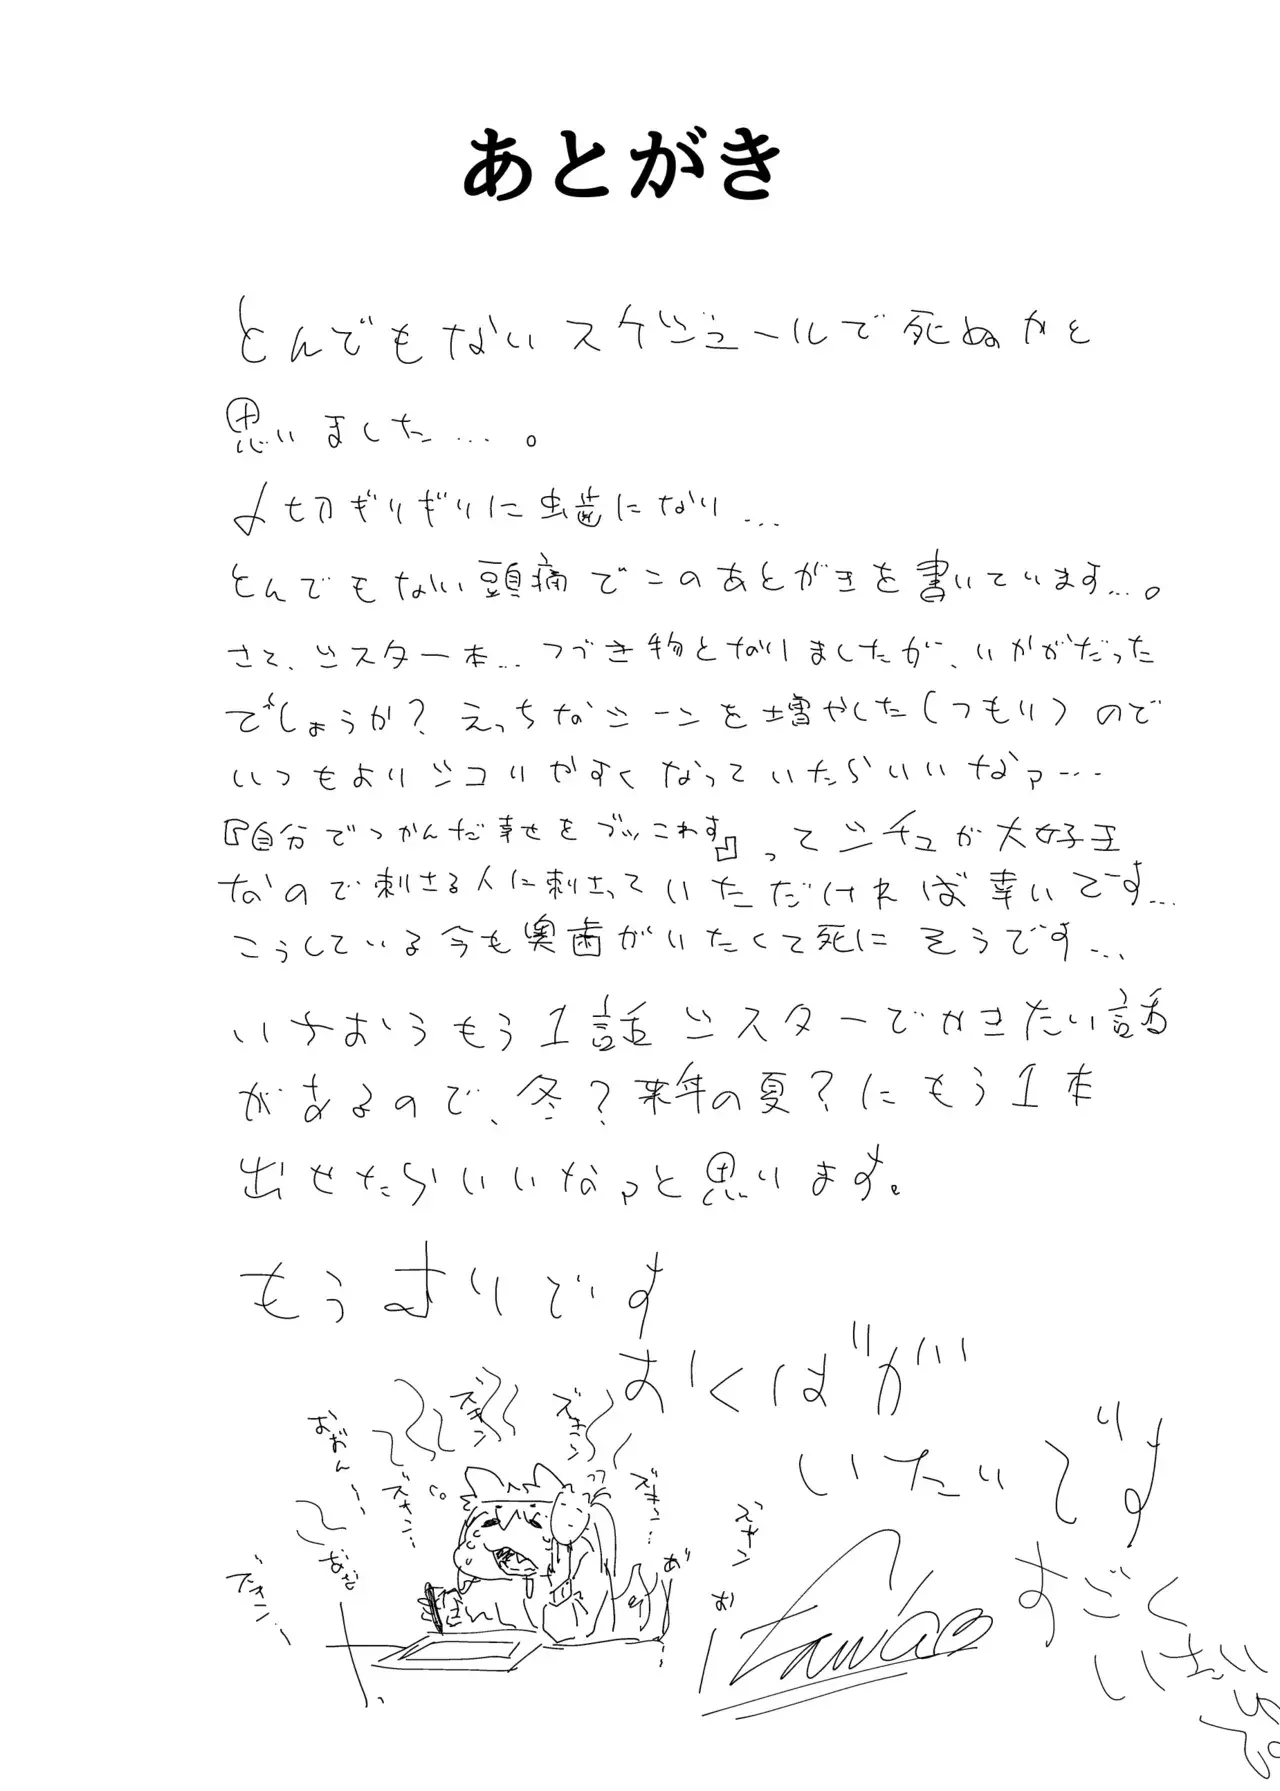 あとがき
とんでもないスケジュールで死ぬかと
思いました…。
〆切ギリギリに虫歯になり…
とんでもない頭痛でこのあとがきを書いています…。
さて、シスター本…つづき物となりましたが、いかがだった
でしょうか?えっちなシーンを増やした(つもり)ので
いつもよりシコりやすくなっていたらいいなァ…
『自分でつかんだ幸せをブッこわす』ってシチュが大好き
なので刺さる人に刺さっていただければ幸いです…
こうしている今も奥歯がいたくて死にそうです…
いちおうもう1話シスターでかきたい話
があるので、冬?来年の夏?にもう1本
出せたらいいなァと思います。
もうよりです
おくばが
いたいです
すごく
いたい
ズキン
ズキン
ズキン…
ズキン…
ズキン
ズキン…
おおん…
お